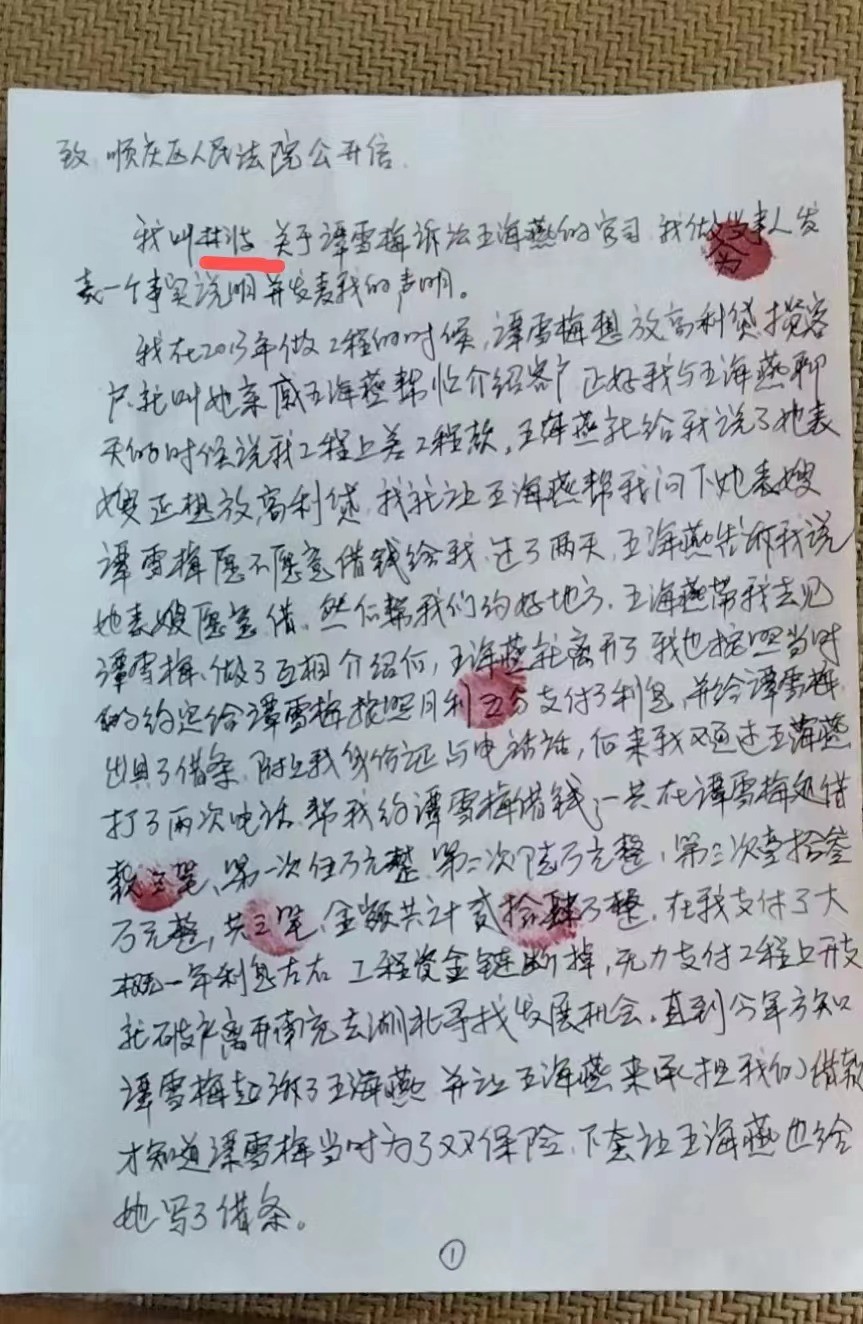 致 顺庆区人民法院公开信.
我叫林波 关于谭雪梅诉讼王海燕的官司 我做为当事人发
表一个事实说明并发表我的声明。
我在2013年做工程的时候,谭雪梅想放高利贷揽客
户.托叫她亲戚王海燕帮忙介绍客户 正好我与王海燕聊
天的时候说我工程上差工程款,王海燕就给我说了她表
嫂正想放高利贷,我就让王海燕帮我问下她表嫂
谭雪梅愿不愿意借钱给我.过了两天.王海燕告诉我说
她表嫂愿意借.然后帮我们约好地方.王海燕带我去见
谭雪梅、做了互相介绍后,王海燕就离开了 我也按照当时
的约定给谭雪梅按照月利五分支付了利息,并给谭雪梅
出具了借条.附上我身份证与电话话,后来我又通过王海燕
打了两次电话.帮我约谭雪梅借钱;一共在谭雪梅处借
款三笔、第一次伍万元整.第二次陆万元整,第三次壹拾叁
万元整,共三笔、金额共计贰拾肆万整.在我支付了大
概一年利息左右 工程资金链断掉,无力支付工程上开支
就破产离开南充去湖北寻找发展机会.直到今年方知
谭雪梅起诉了王海燕 并让王海燕来承担我的借款
才知道谭雪梅当时为了双保险、下套让王海燕也给
她写了借条。
①